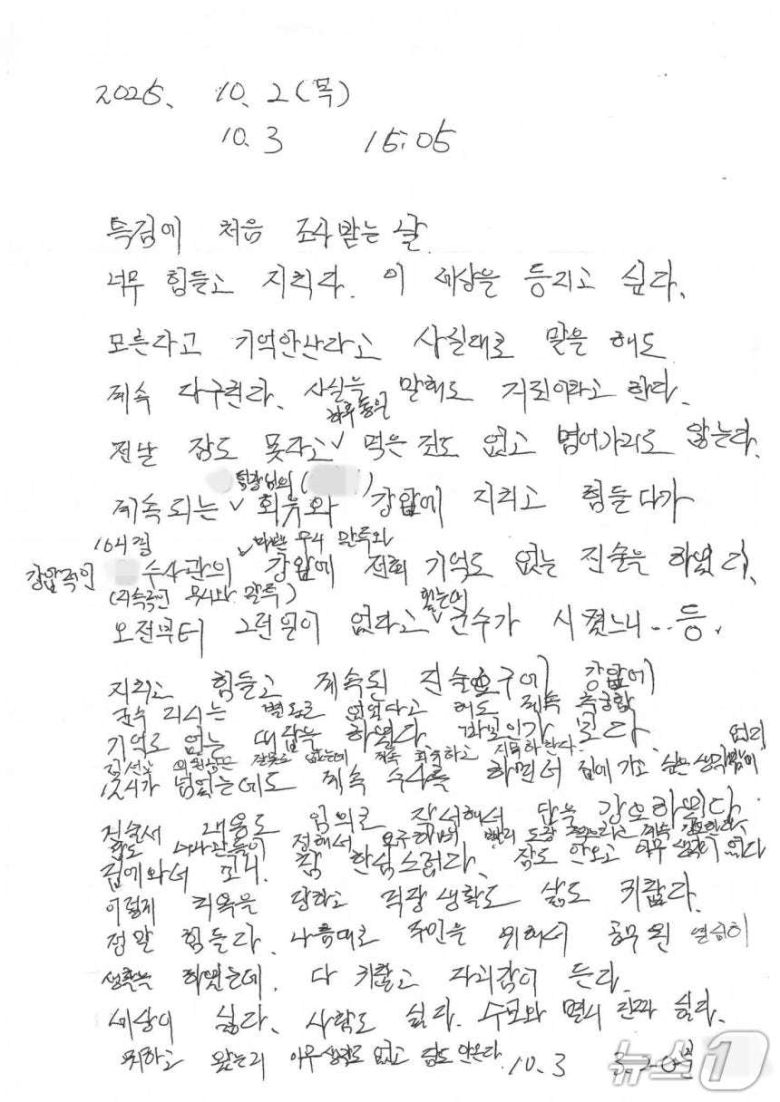 2025. 10. 2(목)
10. 3 15:05
특검에 처음 조사받는 날
너무 힘들고 지치다. 이 세상을 등지고 싶다.
모른다고 기억안난다고 사실대로 말을 해도
계속 다구친다. 사실을 말해도 거짓이라고 한다.
하루종일
전날 잠도 못자고 ✓ 먹은 것도 없고 멍어가리도 않는다.
팀장님의 ( )
계속되는 ✓ 회유와 강압에 지치고 힘들다가
104경 다른 무시 말투와
강압적인 수사관의 ✓ 강압에 전혀 기억도 없는 진술을 하였다.
(지속적인 무시와 말투)
오전부터 그런일이 없다고 ✓ 군수가 시켰느니... 등.
지치고 힘들고 계속된 진술요구에 강압에
군수 지시는 별도로 없었다고 해도 계속 추궁함
기억도 없는 대답을 하였다. 바보인가 보다.
김선교 의원님은 잘못도 없는데 계속 회유하고 지목하란다.
12시가 넘었는데도 계속 수사를 하면서 집에 가고 싶은 생각밖에 없다
진술서 내용도 임의로 작성해서 답을 강요하였다.
집에와서 보니. 참 한심스럽다. 잠도 안오고 아무 생각이 없다
이렇게 치욕을 당하고 직장생활도 삶도 귀찮다.
정말 힘들다. 나름대로 주민을 위해서 공무원 열심히
생활을 하였는데. 다 귀찮고 자괴감이 든다.
세상이 싫다. 사람도 싫다. 수모와 멸시 진짜 싫다.
뭐하고 왔는지 아무생각도 없고 잠도 안온다. 10. 3 3:20분
뉴스1